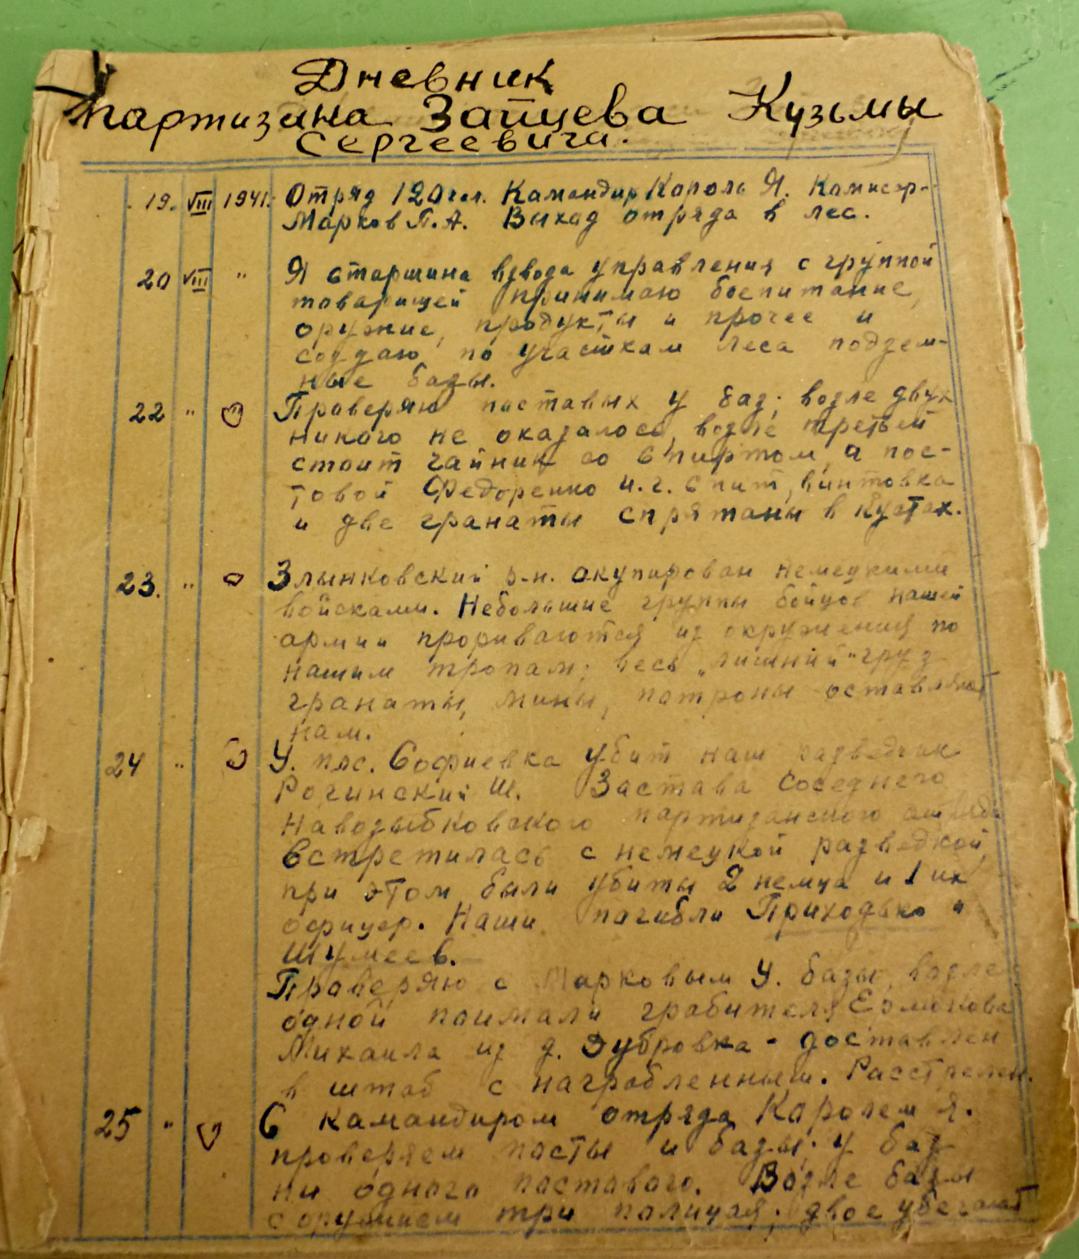 Дневник
партизана Зайцева Кузьмы
Сергеевича.
19. VIII 1941. Отряд 120 чел. Камандир Кароль Я. Камисар-
Марков П.А. Выход отряда в лес.
20 VIII " Я старшина взвода управления с группой
товарищей принимаю боепитание,
оружие, продукты и прочее и
создаю по участкам леса подзем-
ные базы.
22 " Праверяю паставых у баз; возле двух
никаго не оказалось, возле третьей
стоит чайник со спиртом, а пос-
товой Федоренко И.Г. спит, винтовка
и две гранаты спрятаны в кустах.
23. " Злынковский р-н. акупирован немецкими
войсками. Небольшие группы бойцов нашей
армии прориваются из окружения по
нашим тропам; весь „лишний" груз
гранаты, мины, патроны оставляют
нам.
24 " У. пос. Софиевка убит наш разведчик
Рогинский Ш. Застава соседнего
Навозыбковского партизанского отряда
встретилась с немецкой разведкой,
при этом были убиты 2 немца и 1 их
офицер. Наши пагибли Приходько и
Шумеев.
Праверяю с Марковым У. базы, возле
одной паимали грабителя Ермакова
Михаила из д. Дубровка - доставлен
в штаб с награбленным. Расстрелен.
25 " С камандиром отряда Каролем Я.
проверяем пасты и базы; у баз
ни одного паставого. Возле базы
с оружием три палицая; двое убегают